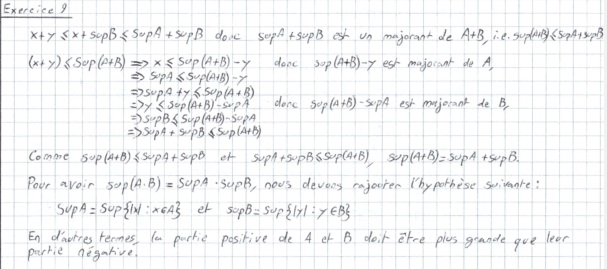 Exercice 9
x+y ≤ x+supB ≤ SupA + supB donc supA + supB est un majorant de A+B, i.e. sup(A+B) ≤ supA+supB
(x+y) ≤ Sup(A+B) => x ≤ Sup(A+B)-y donc sup(A+B)-y est majorant de A,
=> SupA ≤ Sup(A+B)-y
=> SupA + y ≤ Sup(A+B)
=> y ≤ sup(A+B)-supA donc Sup(A+B)-supA est majorant de B,
=> SupB ≤ Sup(A+B)-SupA
=> SupA + supB ≤ Sup(A+B)
Comme sup(A+B) ≤ SupA + supB et supA + supB ≤ Sup(A+B), sup(A+B) = supA + supB.
Pour avoir sup(A·B) = SupA · SupB, nous devons rajouter l'hypothèse suivante :
SupA = Sup{|x| : x∈A} et supB = Sup{|y| : y∈B}
En d'autres termes, la partie positive de A et B doit être plus grande que leur
partie négative.